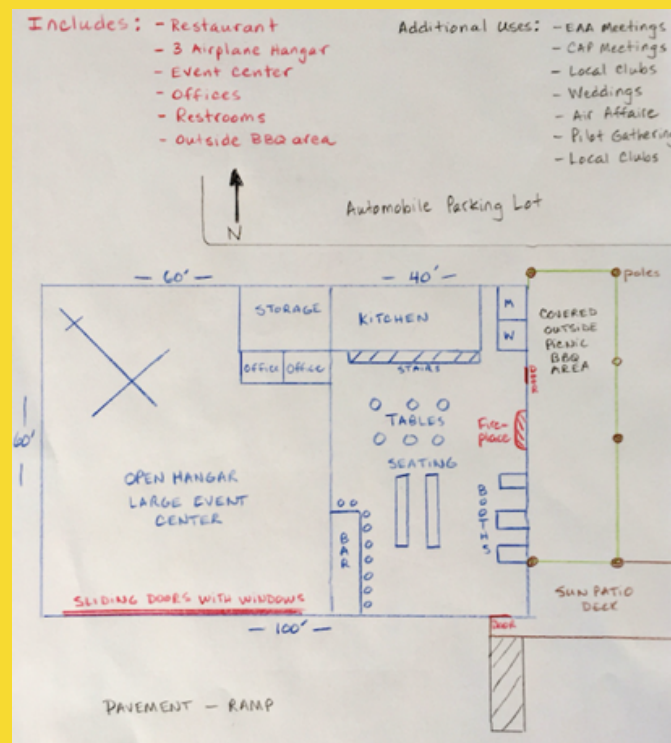 Includes: - Restaurant
- 3 Airplane Hangar
- Event Center
- Offices
- Restrooms
- Outside BBQ area
Additional Uses: - EAA Meetings
- CAP Meetings
- Local Clubs
- Weddings
- Air Affaire
- Pilot Gathering
- Local Clubs
N
Automobile Parking Lot
- 60' -
- 40' -
poles
STORAGE
KITCHEN
M
W
COVERED
OUTSIDE
PICNIC
BBQ
AREA
OFFICE OFFICE
STAIRS
DOOR
TABLES
Fire-
place
60'
SEATING
OPEN HANGAR
LARGE EVENT
CENTER
BAR
BOOTHS
SLIDING DOORS WITH WINDOWS
SUN PATIO
DECK
- 100' -
DOOR
PAVEMENT - RAMP